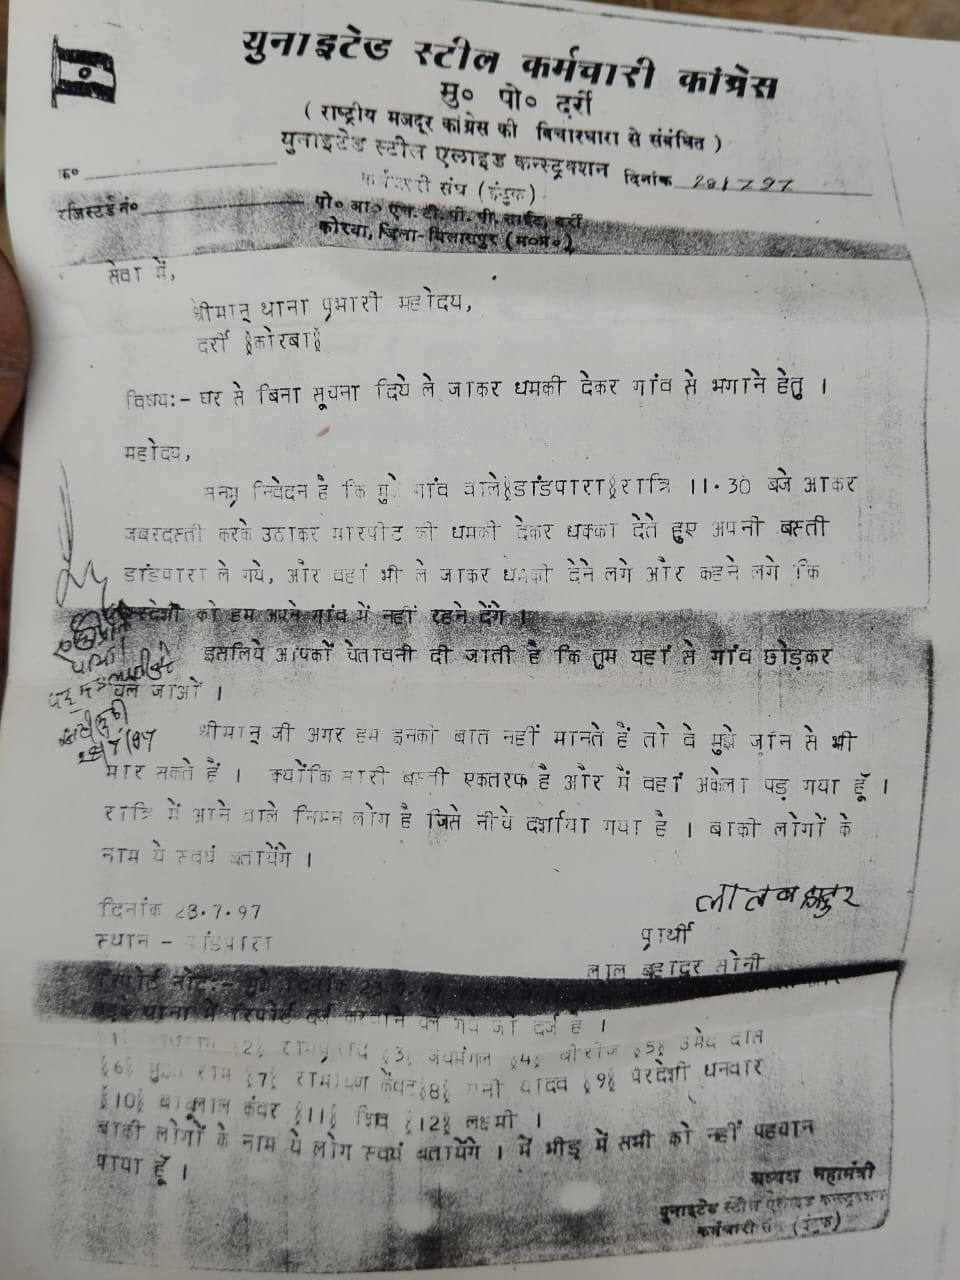 युनाइटेड स्टील कर्मचारी कांग्रेस
मु० पो० दर्री
( राष्ट्रीय मजदूर कांग्रेस की विचारधारा से संबंधित )
युनाइटेड स्टील एलाइड कन्स्ट्रक्शन
क्र०
दिनांक 28/7/97
कर्मचारी संघ (इंटुक)
रजिस्टर्ड नं०
पो० आ० एन. टी. पी. सी. साईट, दर्री
कोरबा, जिला-बिलासपुर (म०प्र०)
सेवा में,
श्रीमान् थाना प्रभारी महोदय,
दर्री §कोरबा§
विषय:- घर से बिना सूचना दिये ले जाकर धमकी देकर गांव से भगाने हेतु ।
महोदय,
निवेदन है कि गांव वाले§डांडपारा§रात्रि 11.30 बजे आकर
जबरदस्ती करके उठाकर मारपीट की धमकी देकर धक्का देते हुए अपनी बस्ती
डांडपारा ले गये, और वहां भी ले जाकर धमकी देने लगे और कहने लगे कि
को हम अपने गांव में नहीं रहने देंगे ।
इसलिये आपको चेतावनी दी जाती है कि तुम यहां से गांव छोड़कर
चले जाओ ।
श्रीमान् जी अगर हम इनकी बात नहीं मानते हैं तो वे मुझे जान से भी
मार सकते हैं । क्योंकि सारी बस्ती एकतरफ है और मैं वहां अकेला पड़ गया हूँ ।
रात्रि में आने वाले निम्न लोग है जिसे नीचे दर्शाया गया है । बाकी लोगों के
नाम ये स्वयं बतायेंगे ।
दिनांक 28.7.97
स्थान - डांडपारा
प्रार्थी
लाल बहादुर सोनी
रिपोर्ट नोट:- दिनांक
थाना में रिपोर्ट दर्ज है ।
§2§ §3§ जयमंगल §4§ §5§ उमेद दास
§6§ राम §7§ §8§ यादव §9§ परदेशी धनवार
§10§ कंवर §11§ शिव §12§ लक्ष्मी ।
बाकी लोगों के नाम ये लोग स्वयं बतायेंगे । में भीड़ में सभी को नहीं पहचान
पाया हूँ ।
अध्यक्ष महामंत्री
युनाइटेड स्टील एलाइड कन्स्ट्रक्शन
कर्मचारी संघ (इंटुक)